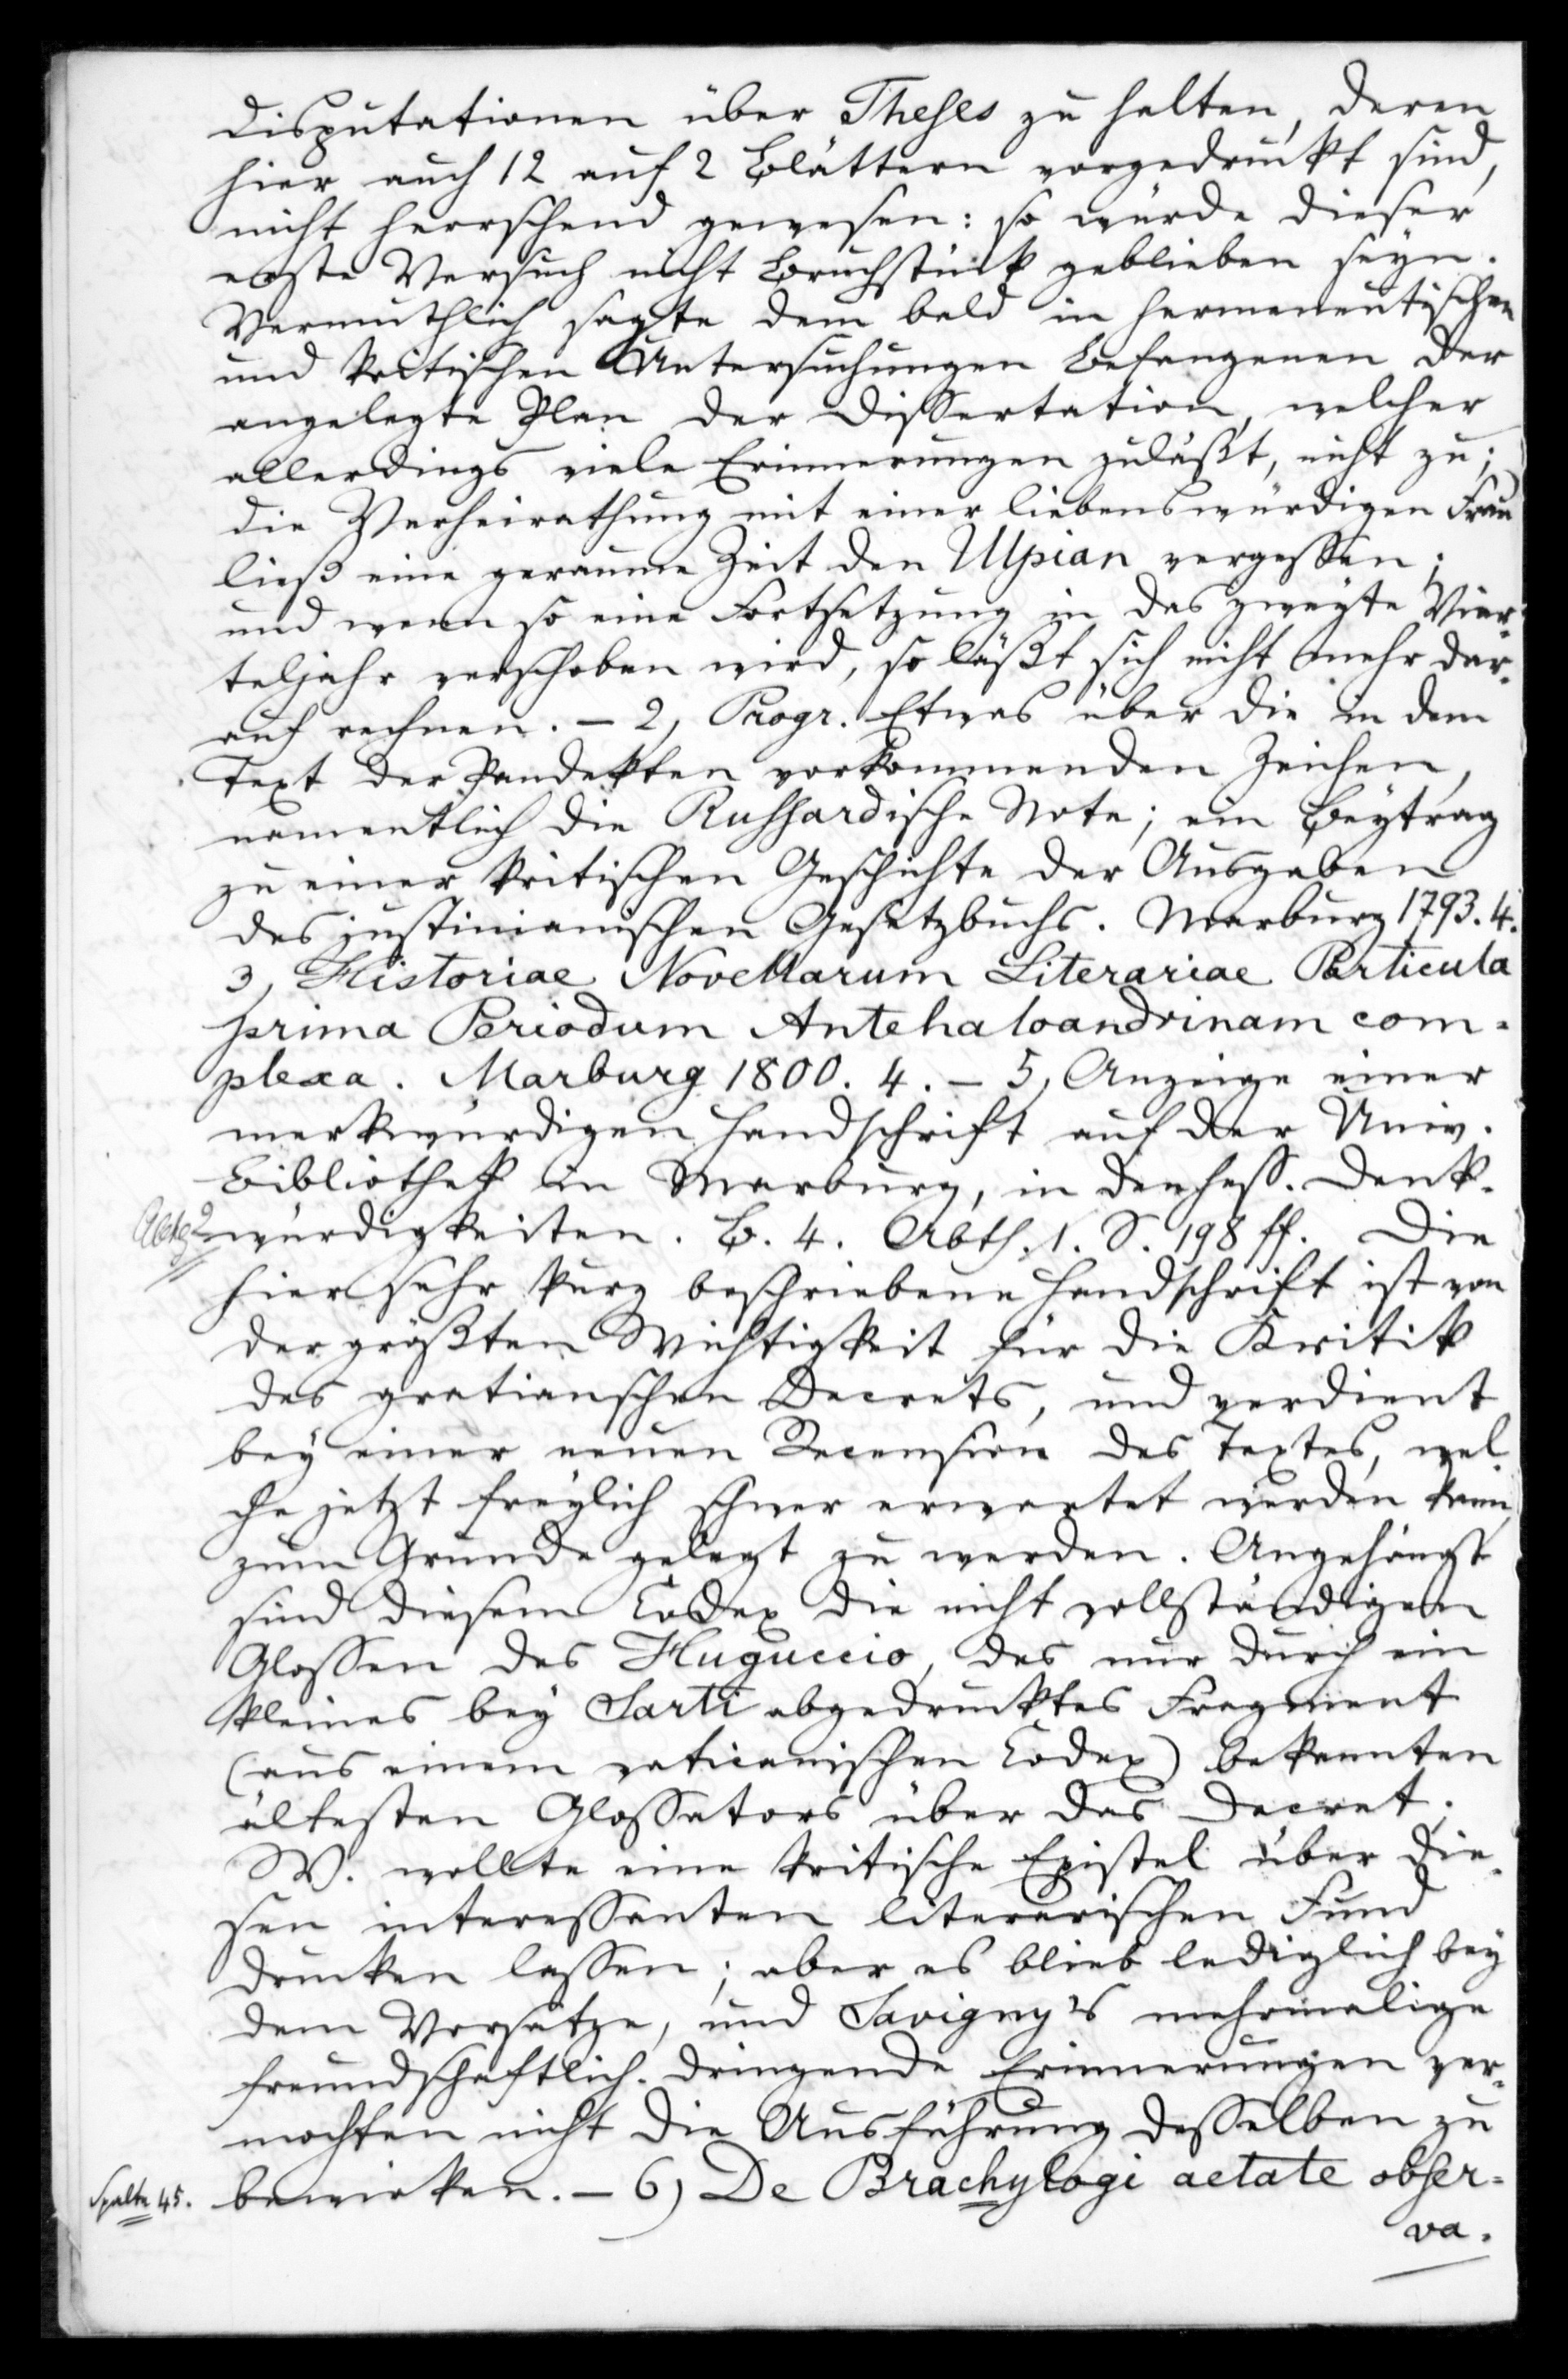 Disputationen über Theses zu halten, deren
hier auch 12 auf 2 Blättern vorgedruckt sind,
nicht herrschend gewesen: so würde dieser
erste Versuch nicht Bruchstück geblieben seyn.
Vermuthlich sagte dem bald in hermeneutischen
und kritischen Untersuchungen Befangenen der
angelegte Plan der Dissertation, welcher
allerdings viele Erinnerungen zuläßt, nicht zu;
die Verheirathung mit einer liebenswürdigen Frau
ließ eine geraume Zeit den Ulpian vergessen;
und wenn so eine Fortsetzung in das zweyte Vier-
teljahr verschoben wird, so läßt sich nicht mehr dar-
auf rechnen. – 2, Progr. Etwas über die in dem
Text der Pandekten vorkommenden Zeichen,
namentlich die Russardische Note; ein Beytrag
zu einer kritischen Geschichte der Ausgaben
des justinianischen Gesetzbuchs. Marburg 1793. 4.
3, Historiae Novellarum Literariae Particula
prima Periodum Antehaloandrinam com-
plexa. Marburg 1800. 4. – 5, Anzeige einer
merkwürdigen Handschrift auf der Univ.
Bibliothek in Marburg, in den hess. Denk-
würdigkeiten. B. 4. Abth. 1. S. 198 ff. Die
hier sehr kurz beschriebene Handschrift ist von
der größten Wichtigkeit für die Kritik
des gratianschen Decrets, und verdient
bey einer neuen Recension des Textes, wel
che jetzt freylich schwer erwartet werden kann,
zum Grunde gelegt zu werden. Angehängt
sind diesem Codex die nicht vollständigen
Glossen des Huguccio, des nur durch ein
kleines bey Sarti abgedrucktes Fragment
(aus einem vaticanischen Codex) bekannten
ältesten Glossators über das Decret.
W. wollte eine kritische Epistel über die-
sen interessanten literarischen Fund
drucken lassen; aber es blieb lediglich bey
dem Vorsatze, und Savigny's mehrmalige
freundschaftlich-dringende Erinnerungen ver-
mochten nicht die Ausführung desselben zu
Spalte 45. bewirken. – 6) De Brachylogi aetate obser-
va-